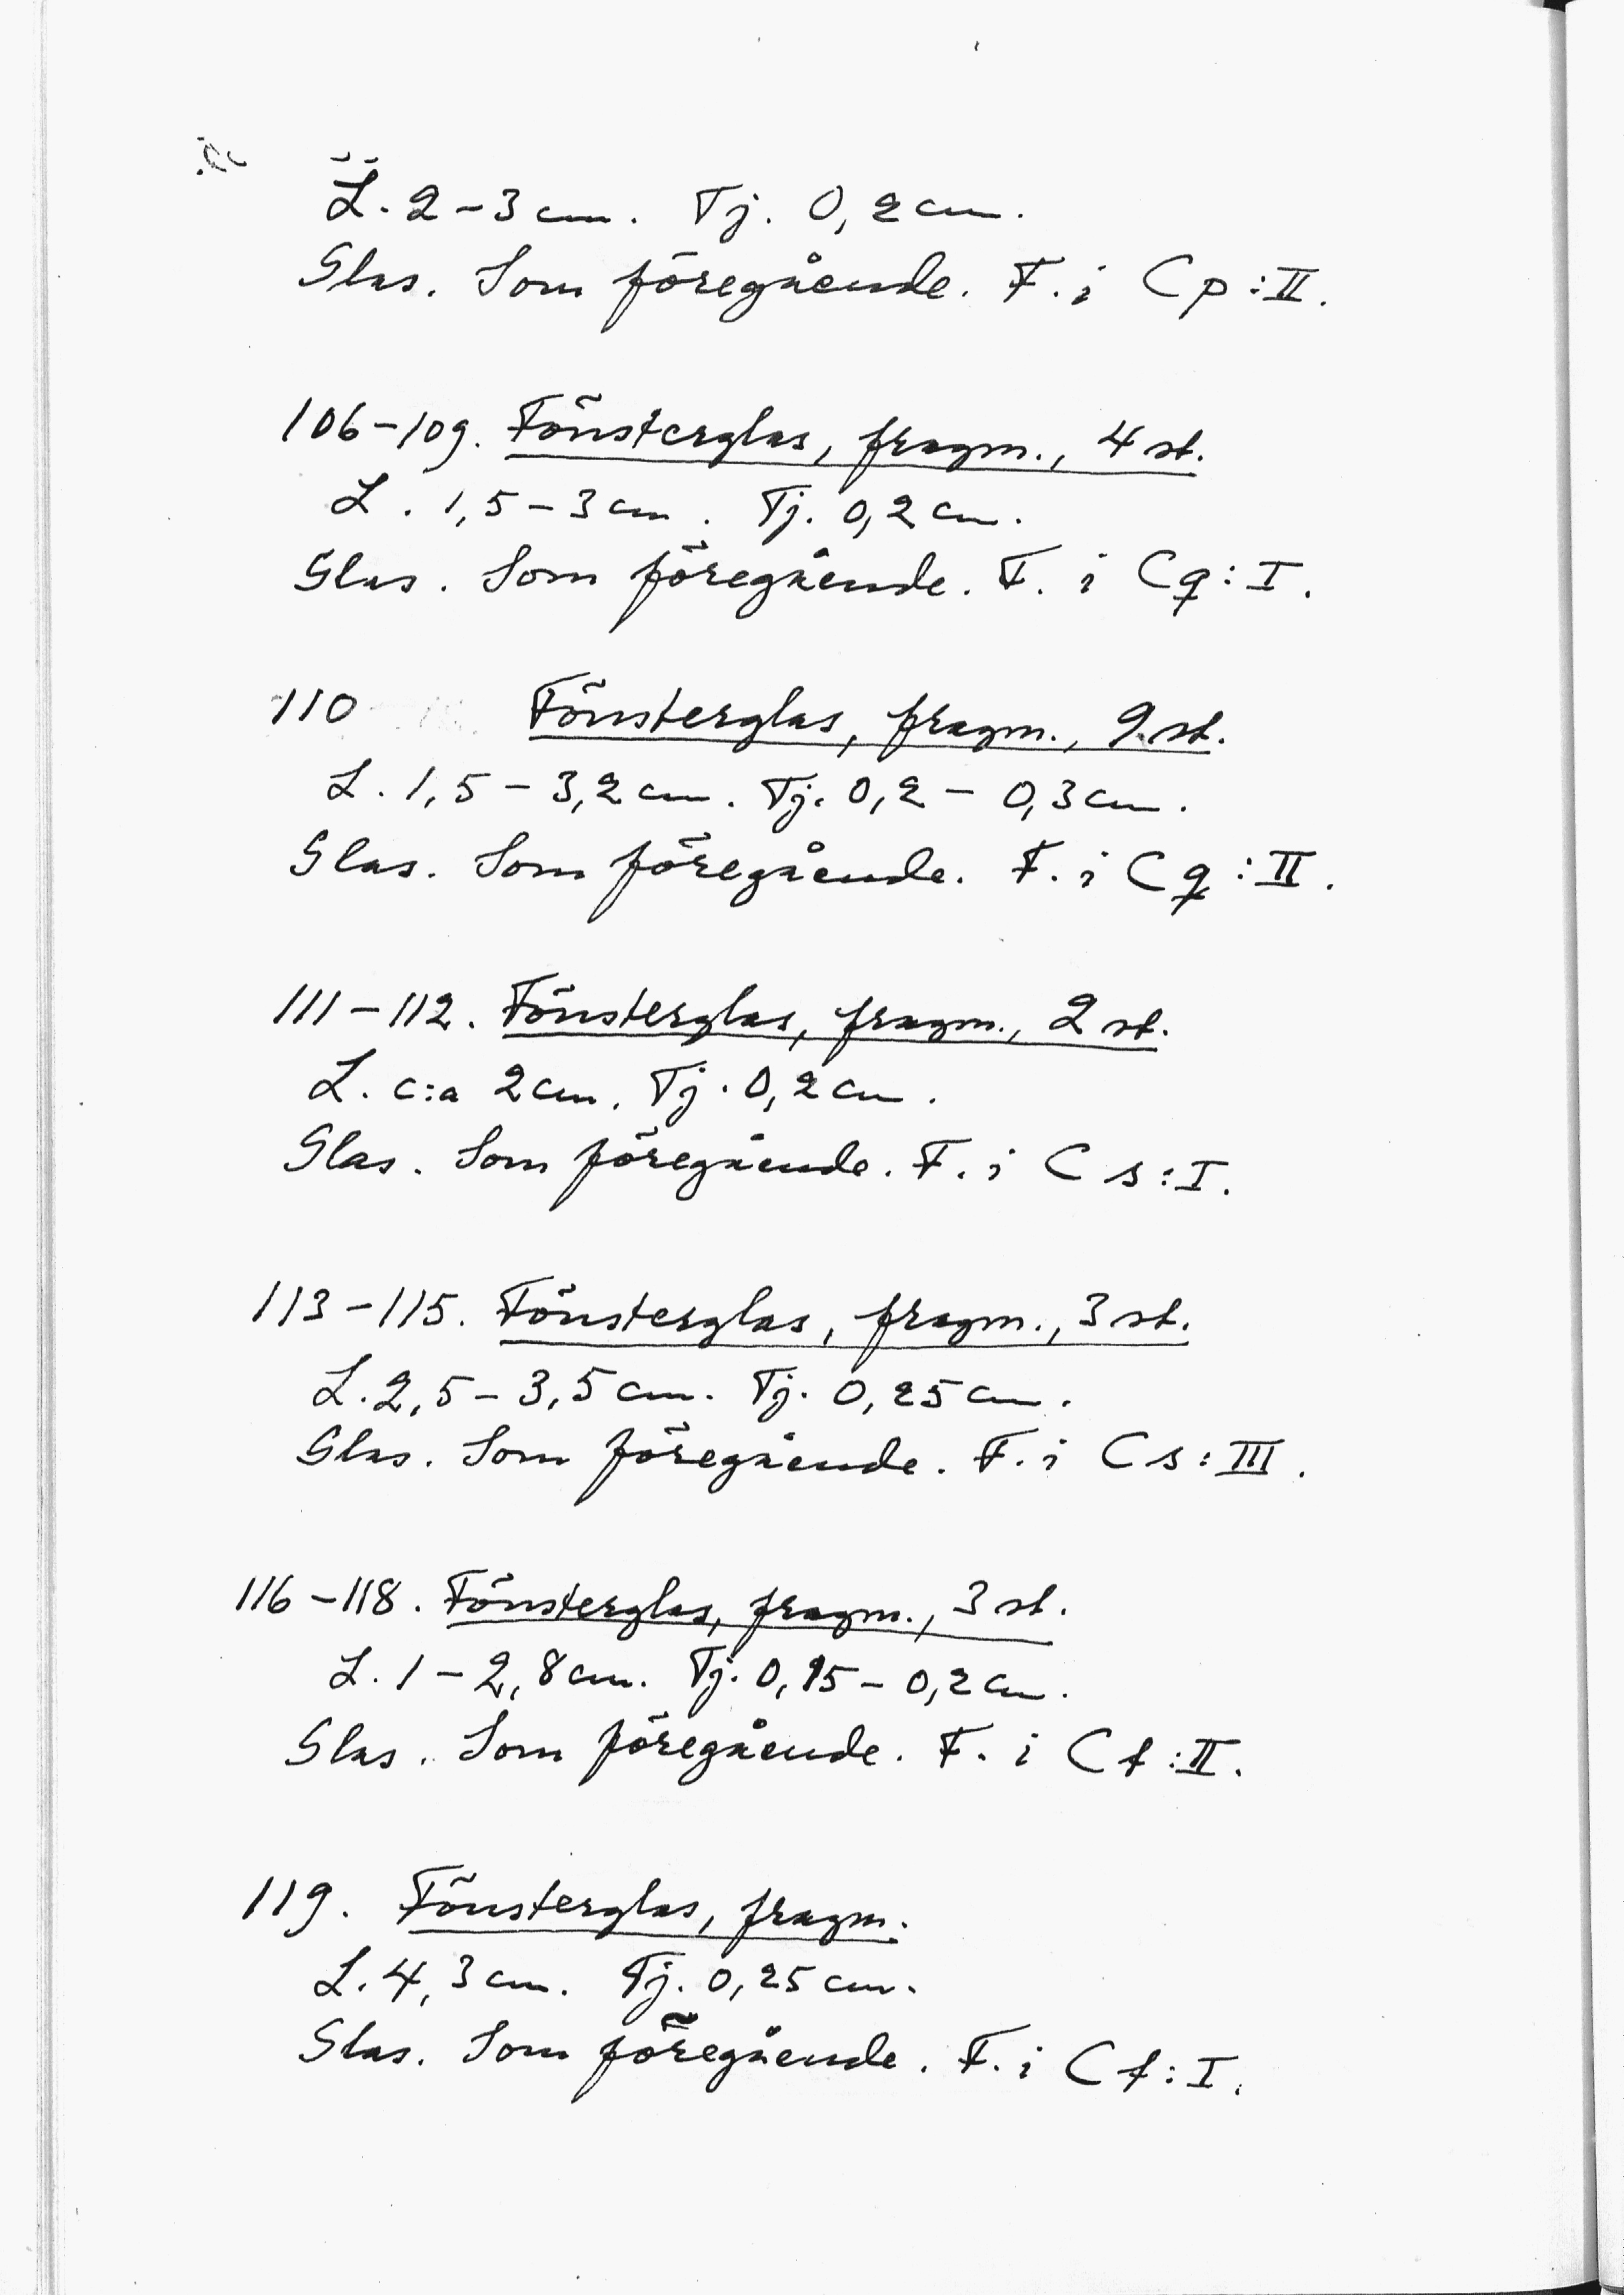 L. 2-3 cm. Tj. 0,2 cm.
Glas. Som föregående. F. i Cp:II.
106-109. Fönsterglas, fragm., 4 st.
L. 1,5-3 cm. Tj. 0,2 cm.
Glas. Som föregående. F. i Cq:I.
110 Fönsterglas, fragm., 9 st.
L. 1,5-3,2 cm. Tj. 0,2-0,3 cm.
Glas. Som föregående. F. i Cq:II.
111-112. Fönsterglas, fragm., 2 st.
L. c:a 2 cm. Tj. 0,2 cm.
Glas. Som föregående. F. i Cs:I.
113-115. Fönsterglas, fragm., 3 st.
L. 2,5-3,5 cm. Tj. 0,25 cm.
Glas. Som föregående. F. i Cs:III.
116-118. Fönsterglas, fragm., 3 st.
L. 1-2,8 cm. Tj. 0,15-0,2 cm.
Glas. Som föregående. F. i Ct:II.
119. Fönsterglas, fragm.
L. 4,3 cm. Tj. 0,25 cm.
Glas. Som föregående. F. i Ct:I.